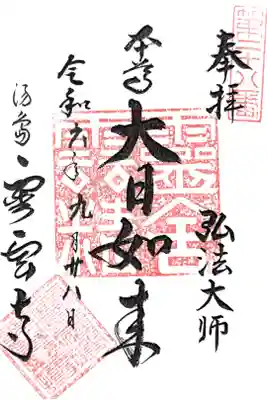 奉拝
弘法大師
本尊
大日如来
令和六年九月廿八日
湯島
霊雲寺